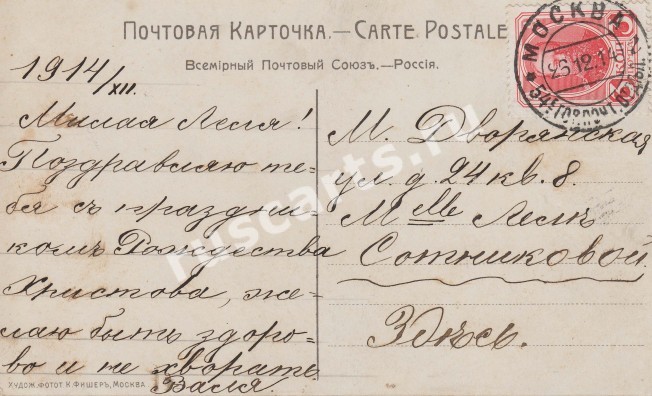 Почтовая Карточка.—Carte Postale
Всемірный Почтовый Союзъ.—Россія.
МОСКВА
26.12.14
1914/XII.
Милая Леля!
Поздравляю те=
бя съ праздни=
комъ Рождества
Христова, же=
лаю быть здоро=
во и не хворать
Валя.
М. Дворянская
ул. д. 24 кв. 8.
М elle Лелѣ
Сотниковой.
Здѣсь.
Худож. фотот. К. Фишеръ, Москва
ruscarts.ru